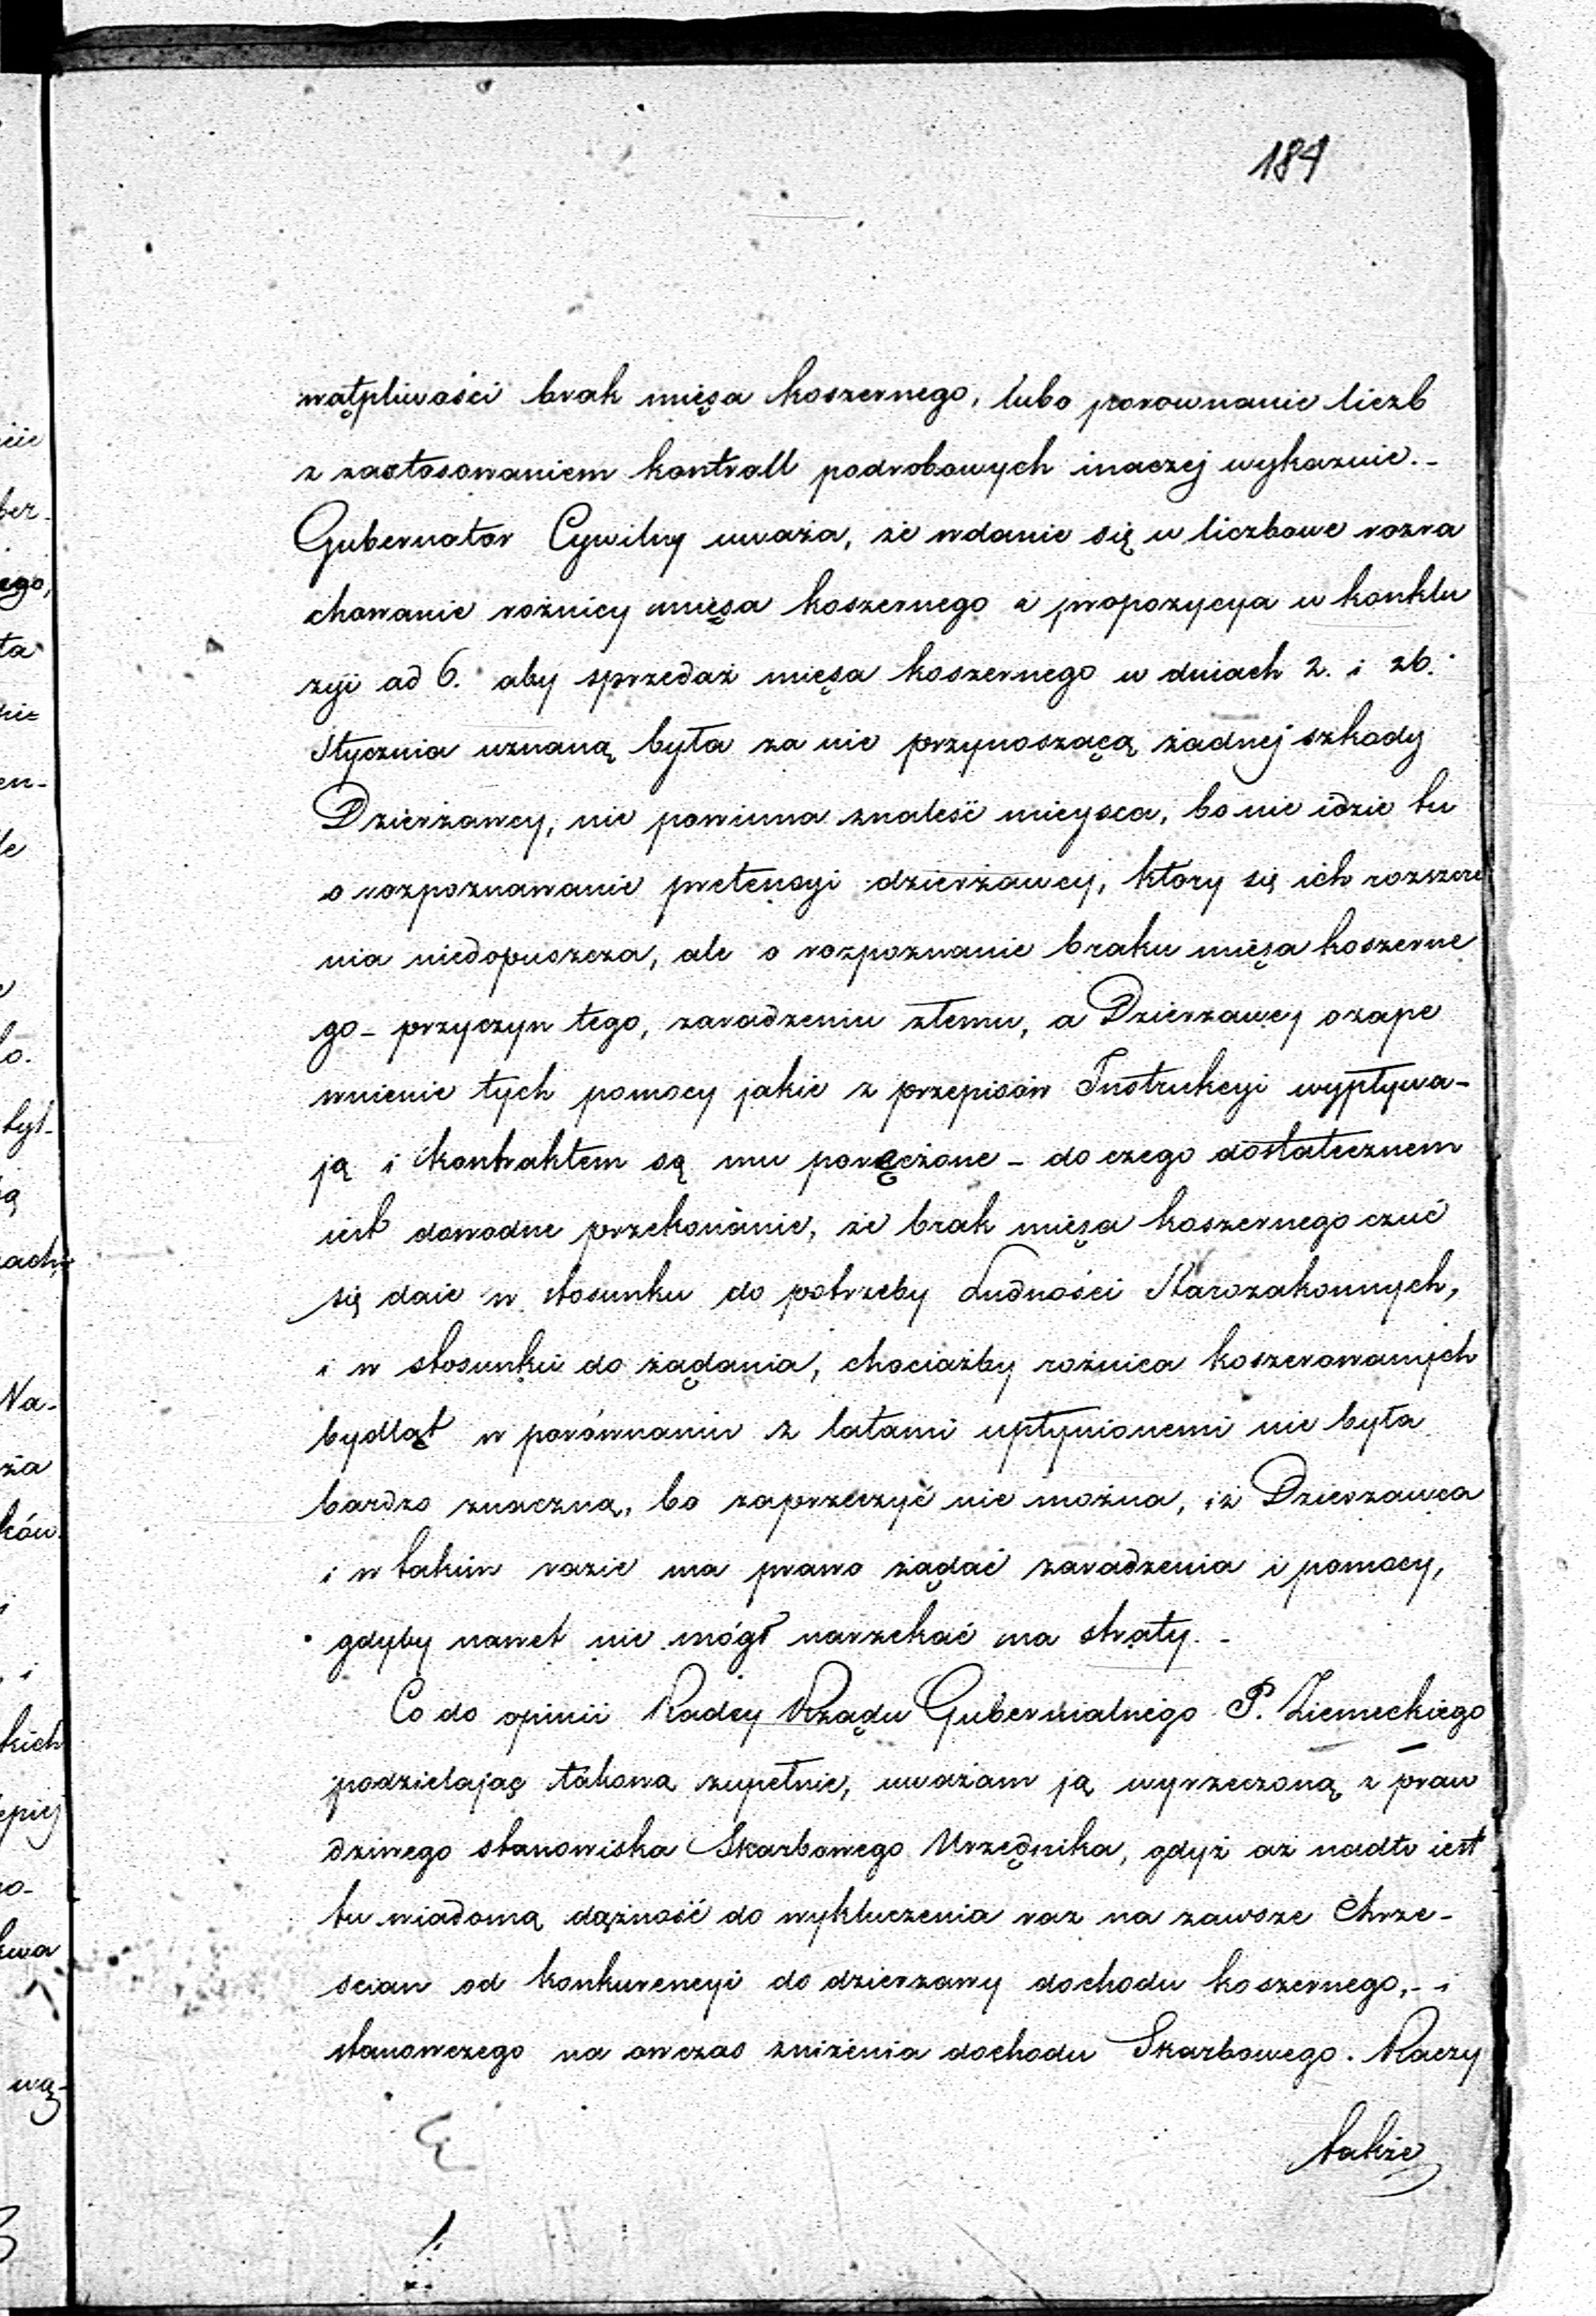 184
wątpliwości brak mięsa koszernego, lubo porownanie liczb
z zastosowaniem kontroll podrobowych inaczej wykazuie. -
Gubernator Cywilny uważa, że wdanie się w liczbowe rozra
chowanie rożnicy mięsa koszernego i propozycya w konklu
zyi ad 6. aby sprzedaż mięsa koszernego w dniach 2. i 26.
Stycznia uznaną była za nie przynoszącą żadnej szkody
Dzierżawcy, nie powinna znaleść mieysca, bo nie idzie tu
o rozpoznawanie pretensyi dzierżawcy, ktory się ich rozszcze
nia niedopuszcza, ale o rozpoznanie braku mięsa koszerne
go - przyczyn tego, zaradzeniu złemu, a Dzierzawcy o zape
wnienie tych pomocy jakie z przepisów Instrukcyi wypływa-
ją i kontraktem są mu poręczone - do czego dostatecznem
iest dowodne przekonanie, że brak mięsa koszernego czuć
się daie w stosunku do potrzeby Ludności Starozakonnych,
i w stosunku do żądania, chociażby rożnica koszerowanych
bydląt w porównaniu z latami upłynionemi nie była
bardzo znaczną, bo zaprzeczyć nie można, iż Dzierzawca
i w takim razie ma prawo żądać zaradzenia i pomocy,
gdyby nawet nie mógł narzekać na straty. -
Co do opinii Radcy Rządu Gubernialnego P. Ziemeckiego
podzielając takową zupełnie, uważam ją wyrzeczoną z praw
dziwego stanowiska Skarbowego Urzędnika, gdyż aż nadto iest
tu wiadomą dążność do wykluczenia raz na zawsze Chrze-
scian od konkurencyi do dzierzawy dochodu koszernego, - i
stanowczego na owczas zniżenia dochodu Skarbowego. Raczy
także